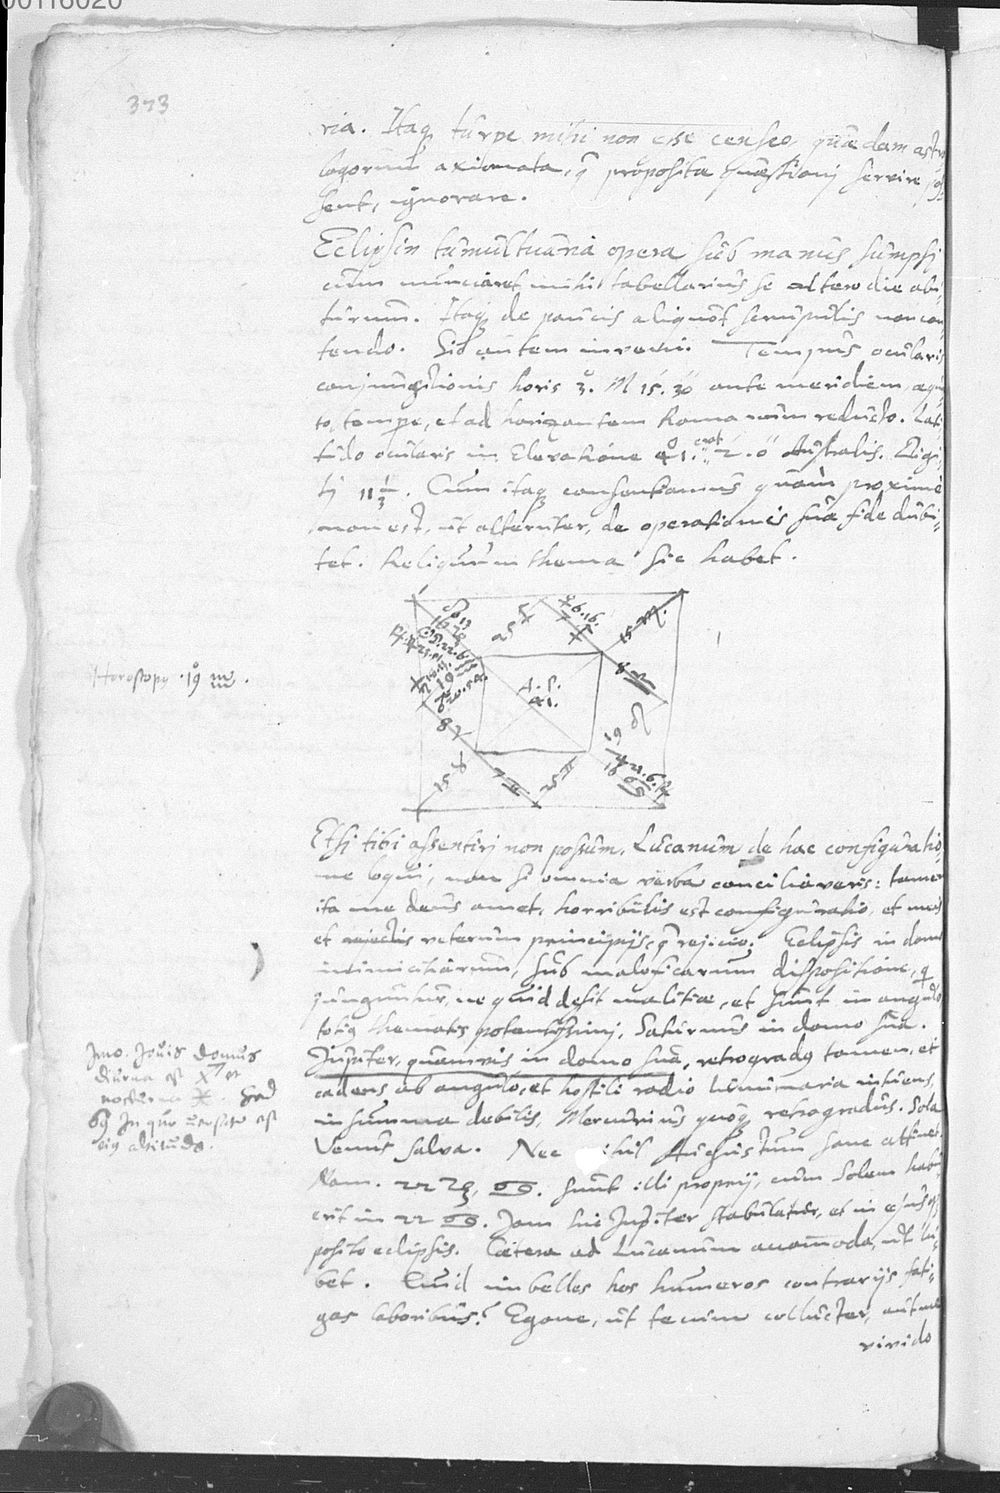 00116020
373
ria. Itaq turpe mihi non esse censeo, quædam astro
logorum axiomata, q proposita quæstioni servire pos
sent, ignorare.
Eclipsin tumultuaria opera sub manus sumpsi
cum nunciaret mihi tabellarius se altero die abi-
turum. Itaq de paucis aliquot scrupulis non con
tendo. Sic autem inveni. Tempus ocularis
conjunctionis horis 3. M 15. 30 ante meridiem, æqua
to tempe, et ad horizontem Romanum reducto. Lati
tudo ocularis in Elevatione 41. erat 2. 0 Australis. Digi
ti 11 1/3. Cum itaq consentiamus quam proxime
non est, ut alteruter, de operationis suæ fide dubi-
tet. Reliquum thema sic habet.
Horoscopg 19 ♒.
15 ♏.
8 ♎
41.
15 ♉
7 ♊
25 ♊
Etsi tibi assentiri non possum, Lucanum de hac configuratio
ne loqui, non si omnia verba conciliaveris: tamen
ita me deus amet, horribilis est configuratio, et meis
et veterum principijs, q rejicio. Eclipsis in domo
inimicitiarum, sub maleficarum dispositione, q
junguntur, ne quid desit malitiæ, et sunt in angulo
totig thematis potentissimi, Saturnus in domo sua.
Jupiter, quamvis in domo sua, retrogradg tamen, et
cadens ab angulo, et hostili radio luminaria intuens,
in summa debilis, Mercurius quoq retrogradus. Sola
Venus salva. Nec Augustum sane attinet.
Nam. 22 ♑, ♋. sunt illi proprij, cum Solem habu
erit in 22 ♋. Jam hic Jupiter stabulatur, et in ejus op
posito eclipsis. Cætera ad Lucanum accommoda, ut lu-
bet. Quid imbelles hos humeros contrarijs fati-
gas laboribus? Egone, ut tecum collucter, aut
vivido
Imo. Jovis domus
diurna est ♐ et
nocturna ♓. Sed
♋ In quo versatur est
eig altitudo.